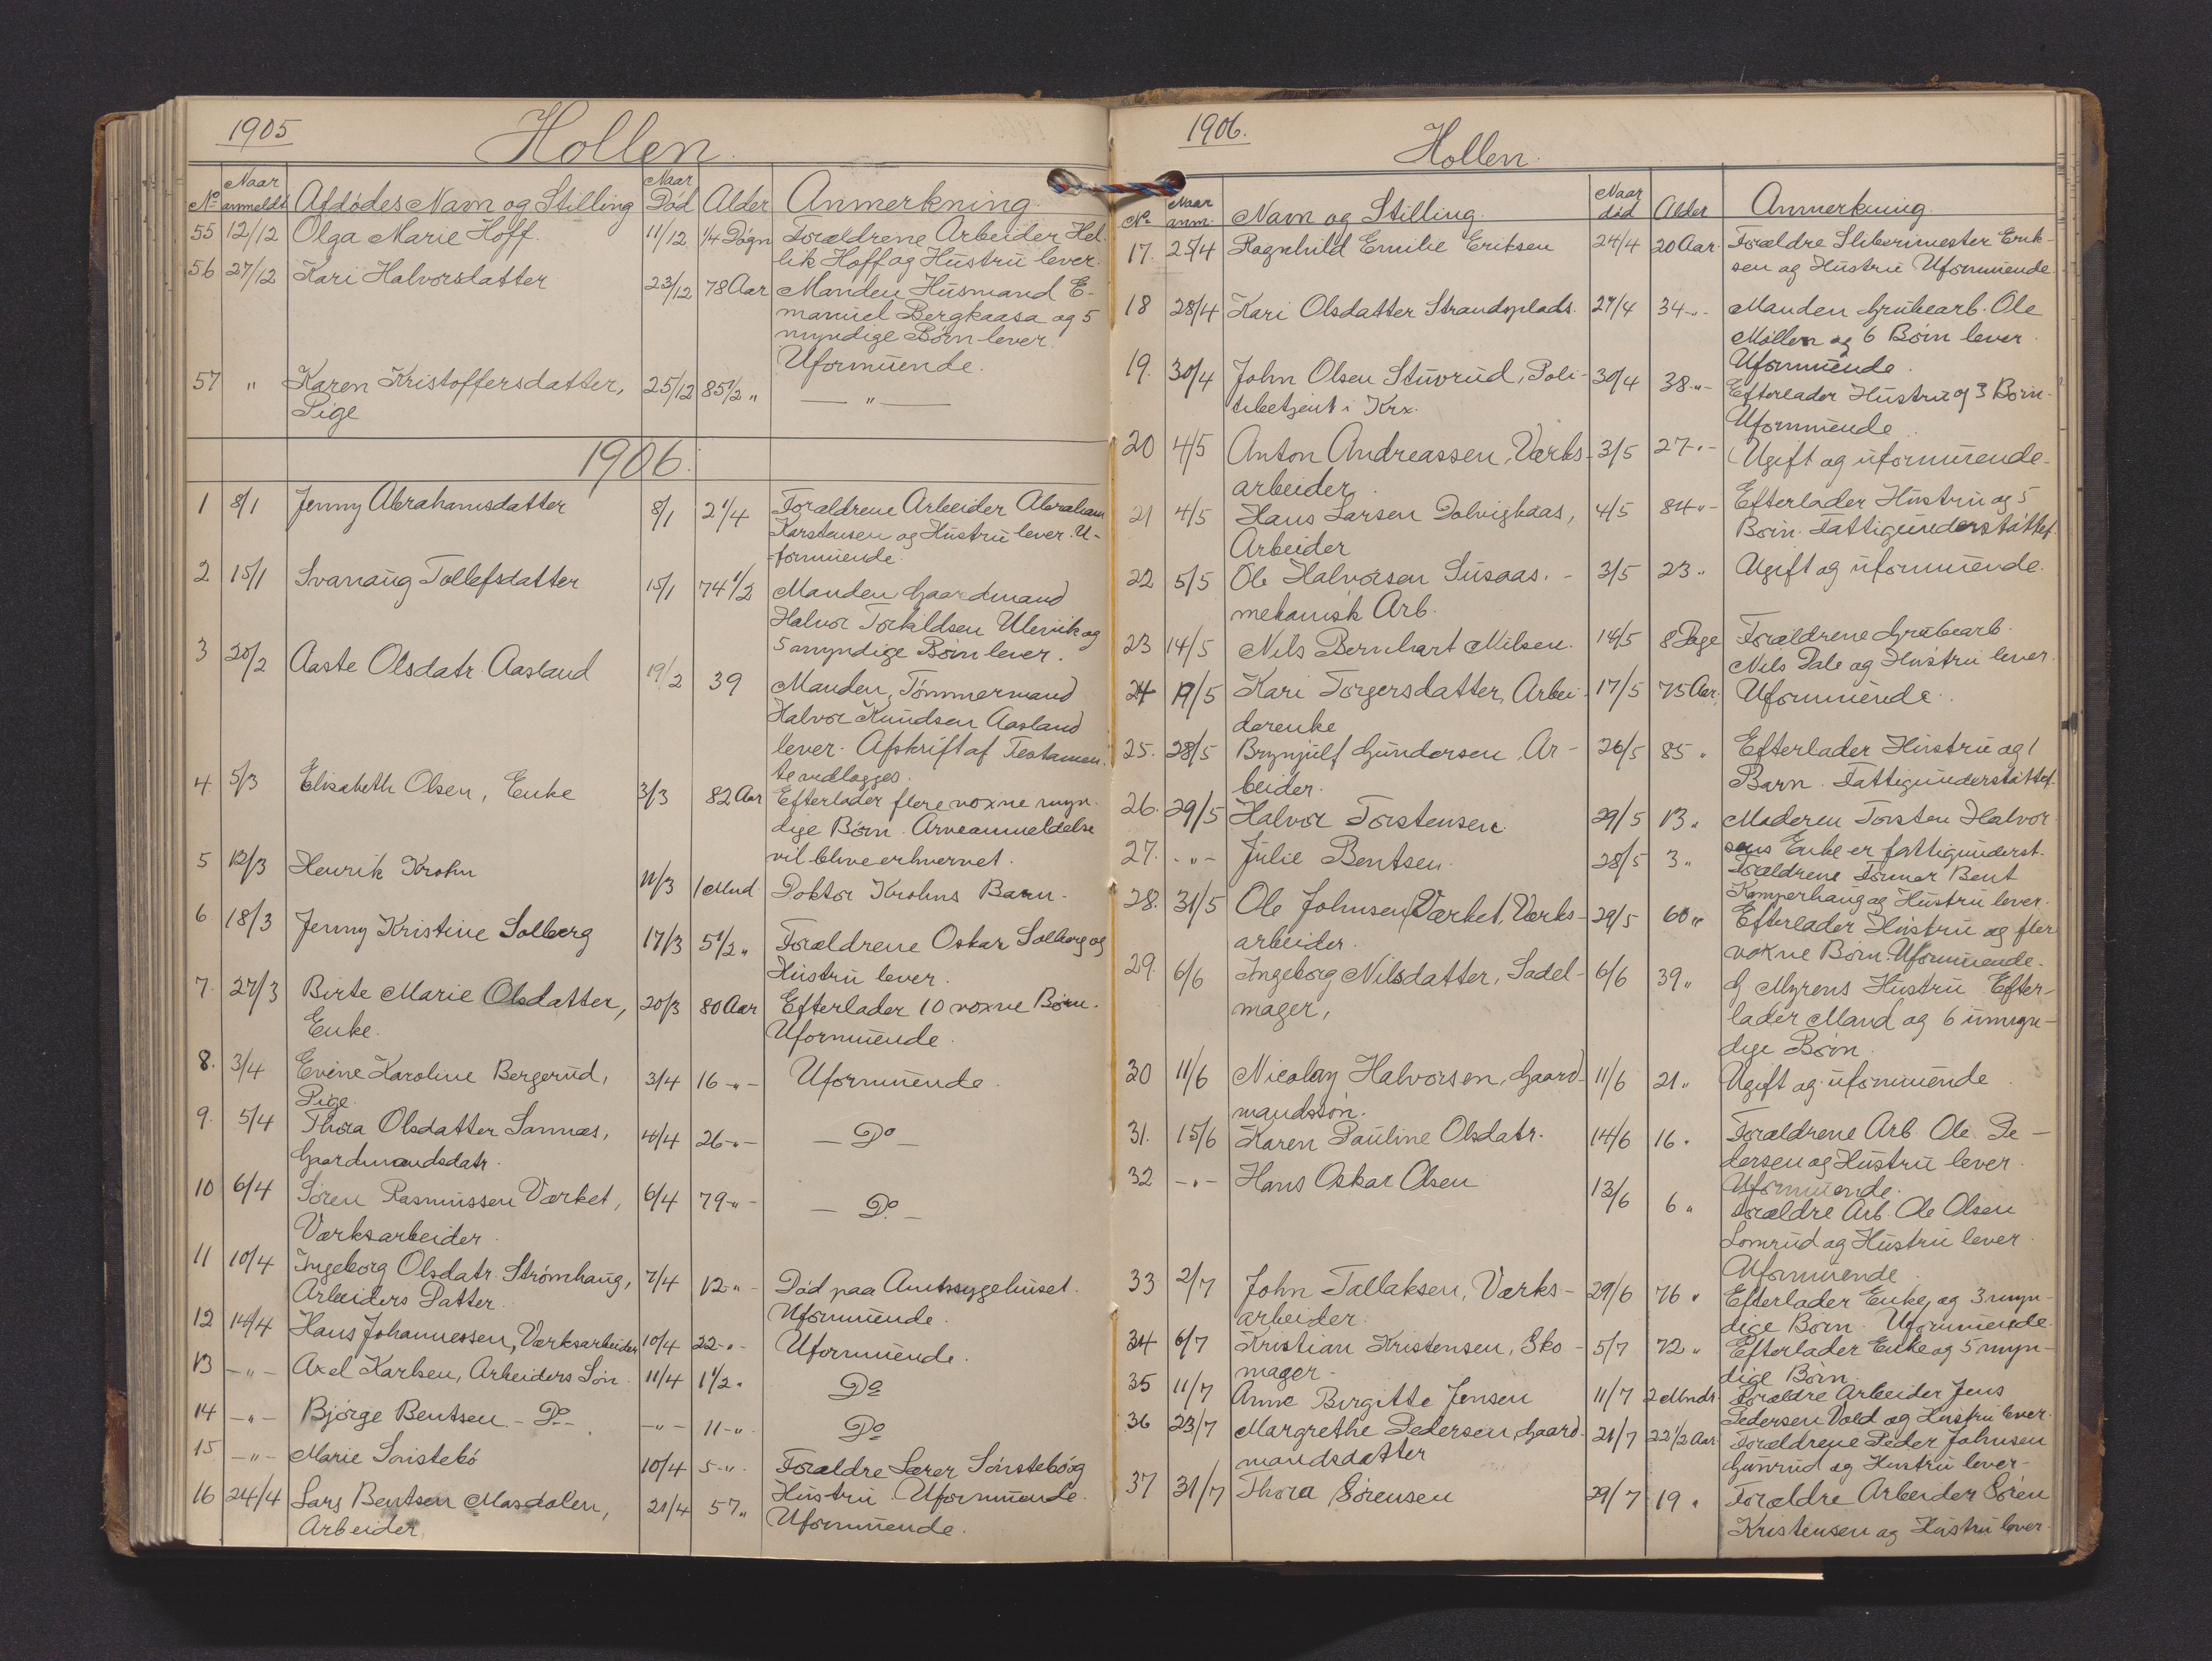 1905
Hollen.
No Naar anmeldt Afdødes Navn og Stilling Naar Død Alder Anmerkning
55 12/12 Olga Marie Hoff. 11/12 1/4 Døgn Forældrene Arbeider Hel-
lik Hoff og Hustru lever.
56 27/12 Kari Halvorsdatter 23/12 78 Aar Manden Husmand E-
manuel Bergkaasa og 5
myndige Børn lever.
Uformuende.
57 " Karen Kristoffersdatter, 25/12 85 1/2 " — " —
Pige
1906.
1 8/1 Jenny Abrahamsdatter 8/1 2 1/4 Forældrene Arbeider Abraham
Karstensen og Hustru lever. U-
formuende.
2 15/1 Svanaug Tollefsdatter 15/1 74 1/2 Manden Gaardmand
Halvor Torkildsen Ulevik og
5 myndige Børn lever.
3 20/2 Aaste Olsdatr Aasland 19/2 39 Manden, Tømmermand
Halvor Knudsen Aasland
lever. Afskrift af Testamen-
te vedlægges.
4 5/3 Elisabeth Olsen, Enke 3/3 82 Aar Efterlader flere voxne myn-
dige Børn. Arveanmeldelse
vil blive erhvervet.
5 12/3 Henrik Krohn 11/3 1 Mnd. Doktor Krohns Barn.
6. 18/3 Jenny Kristine Solberg 17/3 5 1/2 " Forældrene Oskar Solberg og
Hustru lever.
7. 27/3 Birte Marie Olsdatter, 20/3 80 Aar Efterlader 10 voxne Børn.
Enke. Uformuende.
8. 3/4 Evine Karoline Bergerud, 3/4 16 -"- Uformuende.
Pige.
9. 5/4 Thora Olsdatter Sannæs, 4/4 26 -"- — Do —
Gaardmandsdatr.
10 6/4 Søren Rasmussen Værket, 6/4 79 -"- — Do. —
Værksarbeider.
11 10/4 Ingeborg Olsdatr. Strømhaug, 7/4 12 "- Død paa Amtssygehuset.
Arbeiders Datter. Uformuende.
12 14/4 Hans Johannessen, Værksarbeider 10/4 22 -"- Uformuende.
13 -"- Axel Karlsen, Arbeiders Søn. 11/4 1 1/2 " Do
14 -"- Bjørge Bentsen - Do - -"- 11 -"- Do
15 -"- Marie Sønstebø 10/4 5 -"- Forældre Lærer Sønstebø og
Hustru. Uformuende.
16 24/4 Lars Bentsen Masdalen, 21/4 57 " Uformuende.
Arbeider
1906.
Hollen.
No Naar anm. Navn og Stilling. Naar død Alder Anmerkning
17. 25/4 Ragnhild Emilie Eriksen 24/4 20 Aar. Forældre Sliberimester Erik-
sen og Hustru Uformuende.
18 28/4 Kari Olsdatter Strandsplads. 27/4 34 -"- Manden Grubearb. Ole
Møllen og 6 Børn lever.
Uformuende.
19. 30/4 John Olsen Stuvrud, Poli- 30/4 38 -"- Efterlader Hustru og 3 Børn.
tibetjent i Krx. Uformuende.
20 4/5 Anton Andreassen, Værks- 3/5 27 -"- Ugift og uformuende.
arbeider.
21 4/5 Hans Larsen Dolvigkaas, 4/5 84 "- Efterlader Hustru og 5
Arbeider Børn. Fattigunderstøttet.
22 5/5 Ole Halvorsen Susaas. - 3/5 23 " Ugift og uformuende.
mekanisk Arb.
23 14/5 Nils Bernhart Nilsen. 14/5 8 Dage Forældrene Grubearb.
Nils Dale og Hustru lever.
24 19/5 Kari Torgersdatter, Arbei- 17/5 75 Aar. Uformuende.
derenke
25. 28/5 Brynjulf Gundersen, Ar- 26/5 85 " Efterlader Hustru og 1
beider. Barn. Fattigunderstøttet.
26. 29/5 Halvor Torstensen. 29/5 13 " Moderen Torsten Halvor-
sens Enke er fattigunderst.
27. -"- Julie Bentsen. 28/5 3 " Forældrene Former Bent
Kamperhaug og Hustru lever.
28. 31/5 Ole Johnsen Værket, Værks- 29/5 60 " Efterlader Hustru og flere
arbeider. voksne Børn. Uformuende.
29. 6/6 Ingeborg Nilsdatter, Sadel- 6/6 39 " G Myrens Hustru Efter-
mager, lader Mand og 6 umyn-
dige Børn.
30 11/6 Nicolay Halvorsen, Gaard- 11/6 21 " Ugift og uformuende.
mandssøn.
31. 15/6 Karen Pauline Olsdatr. 14/6 16 " Forældrene Arb. Ole Pe-
dersen og Hustru lever.
Uformuende.
32 -"- Hans Oskar Olsen 13/6 6 " Forældre Arb. Ole Olsen
Lomrud og Hustru lever.
Uformuende.
33 2/7 John Tallaksen, Værks- 29/6 76 " Efterlader Enke, og 3 myn-
arbeider. dige Børn. Uformuende.
34 6/7 Kristian Kristensen, Sko- 5/7 72 " Efterlader Enke og 5 myn-
mager. dige Børn.
35 11/7 Anne Birgitte Jensen 11/7 2 Mndr. Forældre Arbeider Jens
Pedersen Vold og Hustru lever.
36 23/7 Margrethe Pedersen, Gaard- 21/7 22 1/2 Aar Forældrene Peder Johnsen
mandsdatter Gunrud og Hustru lever.
37 31/7 Thora Sørensen 29/7 19 " Forældre Arbeider Søren
Kristensen og Hustru lever.